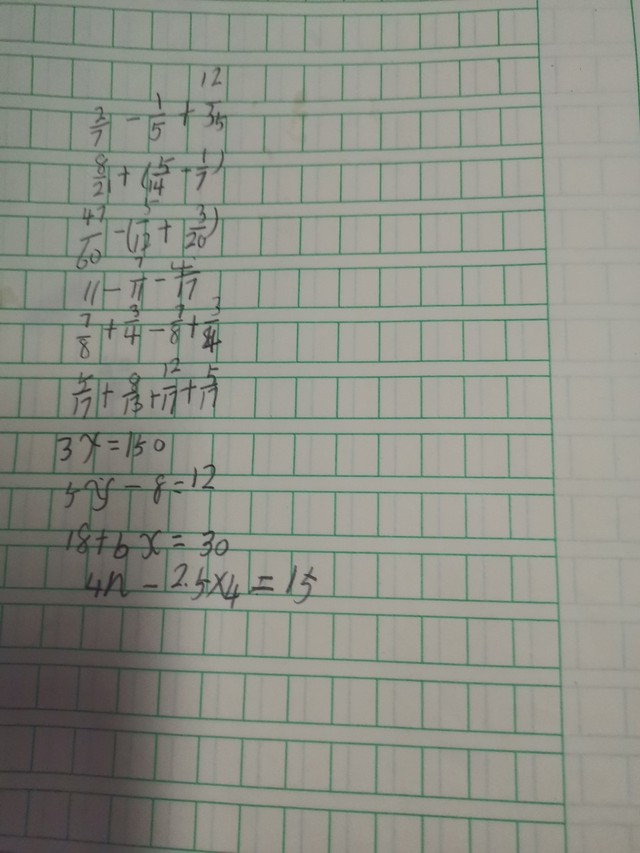 2/7 - 1/5 + 12/35
8/21 + (5/14 - 1/7)
47/60 - (5/12 + 3/20)
11 - 7/11 - 4/17
7/8 + 3/4 - 7/8 + 3/4
5/17 + 8/13 + 12/17 + 5/17
3x=150
5y-8=12
18+6x=30
4n-2.5×4=15